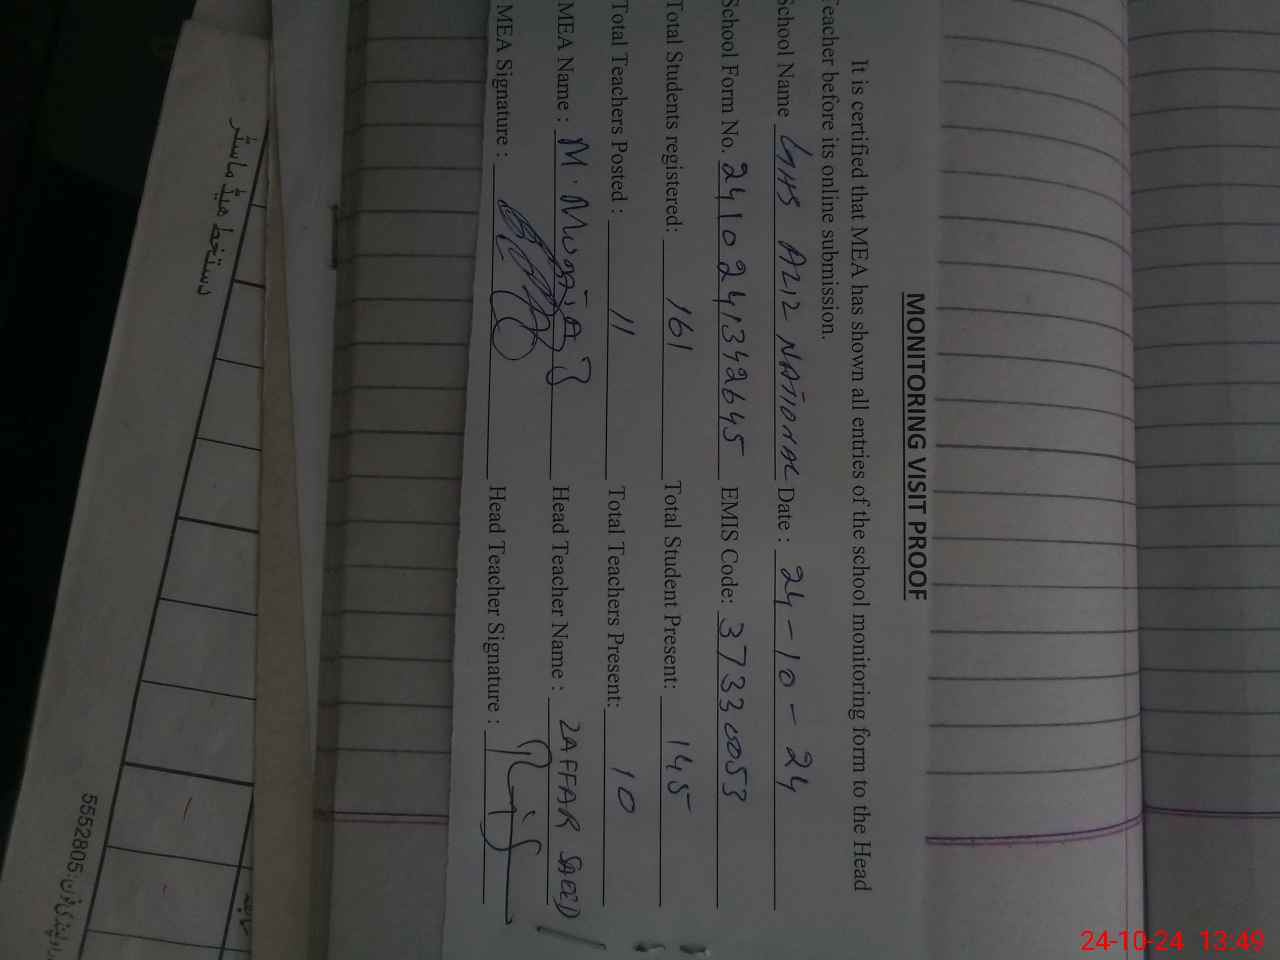 MONITORING VISIT PROOF
It is certified that MEA has shown all entries of the school monitoring form to the Head
Teacher before its online submission.
School Name GHS AZIZ NATIONAL Date : 24-10-24
School Form No. 2410241342645 EMIS Code: 37330053
Total Students registered: 161 Total Student Present: 145
Total Teachers Posted : 11 Total Teachers Present: 10
MEA Name : M. Head Teacher Name : ZAFFAR SAEED
MEA Signature : Head Teacher Signature :
دستخط ہیڈ ماسٹر
5552805
24-10-24 13:49